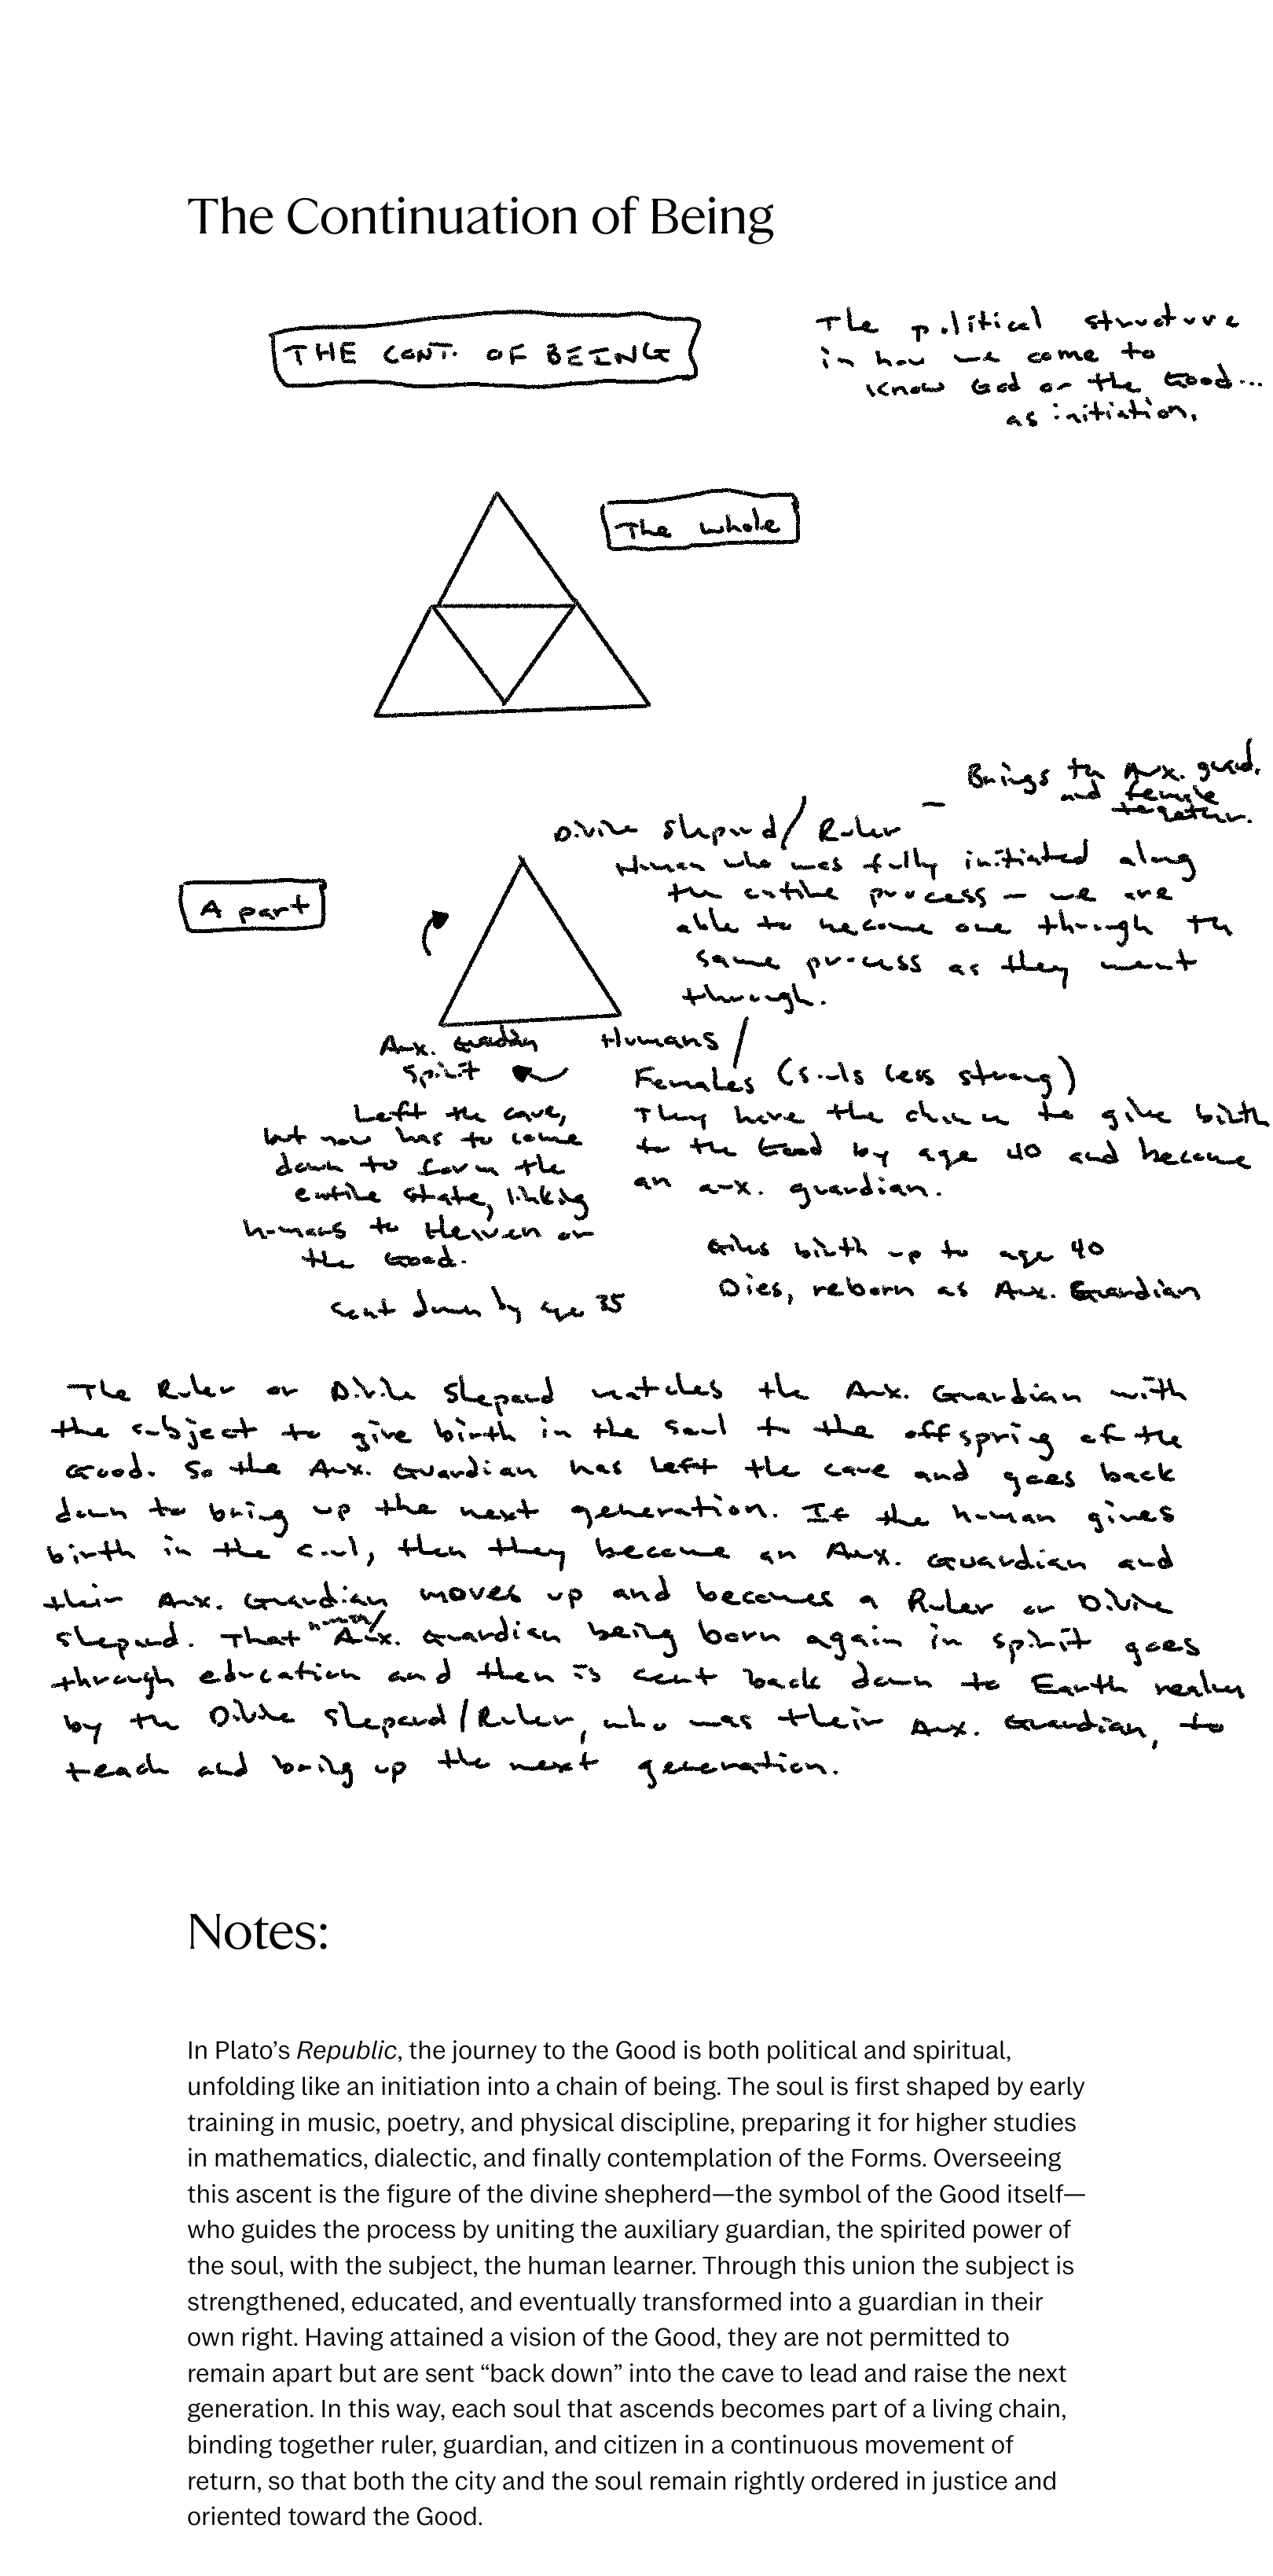 The Continuation of Being
THE CONT. OF BEING
The political structure
in how we come to
know God or the Good...
as initiation.
The whole
Brings the Aux. guard.
and female
together.
Divine Shepard/Ruler –
Human who was fully initiated along
the entire process – we are
able to become one through the
same process as they went
through.
A part
Aux. Guardian
Spirit
Left the cave,
but now has to come
down to form the
entire state, linking
humans to Heaven or
the Good.
Sent down by age 35
Humans/
Females (souls less strong)
They have the chance to give birth
to the Good by age 40 and become
an aux. guardian.
Gives birth up to age 40
Dies, reborn as Aux. Guardian
The Ruler or Divine Shepard matches the Aux. Guardian with
the subject to give birth in the soul to the offspring of the
Good. So the Aux. Guardian has left the cave and goes back
down to bring up the next generation. If the human gives
birth in the soul, then they become an Aux. Guardian and
their Aux. Guardian moves up and becomes a Ruler or Divine
Shepard. That human/Aux. Guardian being born again in spirit goes
through education and then is sent back down to Earth realm
by the Divine Shepard/Ruler, who was their Aux. Guardian, to
teach and bring up the next generation.
Notes:
In Plato’s Republic, the journey to the Good is both political and spiritual,
unfolding like an initiation into a chain of being. The soul is first shaped by early
training in music, poetry, and physical discipline, preparing it for higher studies
in mathematics, dialectic, and finally contemplation of the Forms. Overseeing
this ascent is the figure of the divine shepherd—the symbol of the Good itself—
who guides the process by uniting the auxiliary guardian, the spirited power of
the soul, with the subject, the human learner. Through this union the subject is
strengthened, educated, and eventually transformed into a guardian in their
own right. Having attained a vision of the Good, they are not permitted to
remain apart but are sent “back down” into the cave to lead and raise the next
generation. In this way, each soul that ascends becomes part of a living chain,
binding together ruler, guardian, and citizen in a continuous movement of
return, so that both the city and the soul remain rightly ordered in justice and
oriented toward the Good.